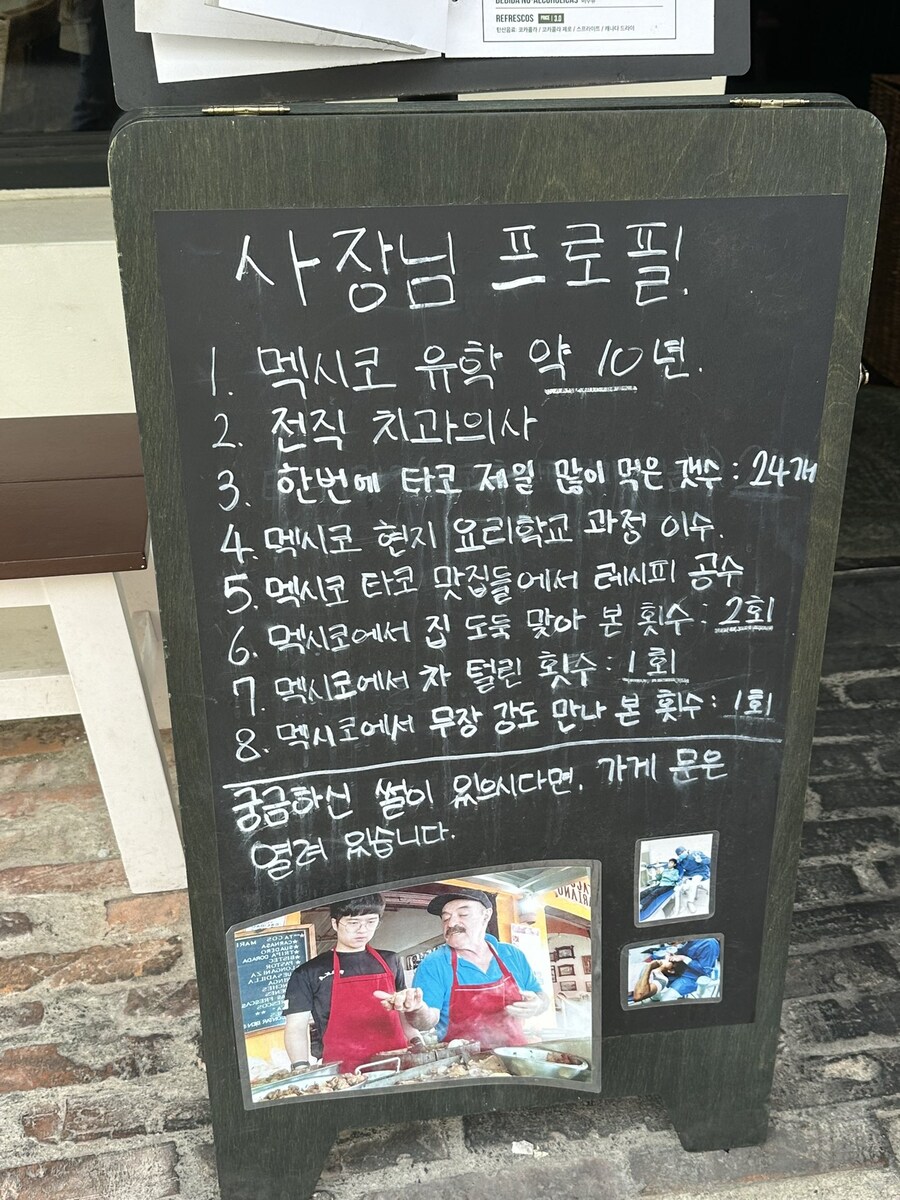 BEBIDA NO ALCOHÓLICAS
REFRESCOS
탄산음료: 코카콜라 / 코카콜라 제로 / 스프라이트 / 캐나다 드라이
사장님 프로필.
1. 멕시코 유학 약 10년.
2. 전직 치과의사
3. 한번에 타코 제일 많이 먹은 갯수 : 24개
4. 멕시코 현지 요리학교 과정 이수.
5. 멕시코 타코 맛집들에서 레시피 공수
6. 멕시코에서 집 도둑 맞아 본 횟수 : 2회
7. 멕시코에서 차 털린 횟수 : 1회
8. 멕시코에서 무장 강도 만나 본 횟수 : 1회
궁금하신 썰이 있으시다면, 가게 문은
열려 있습니다.